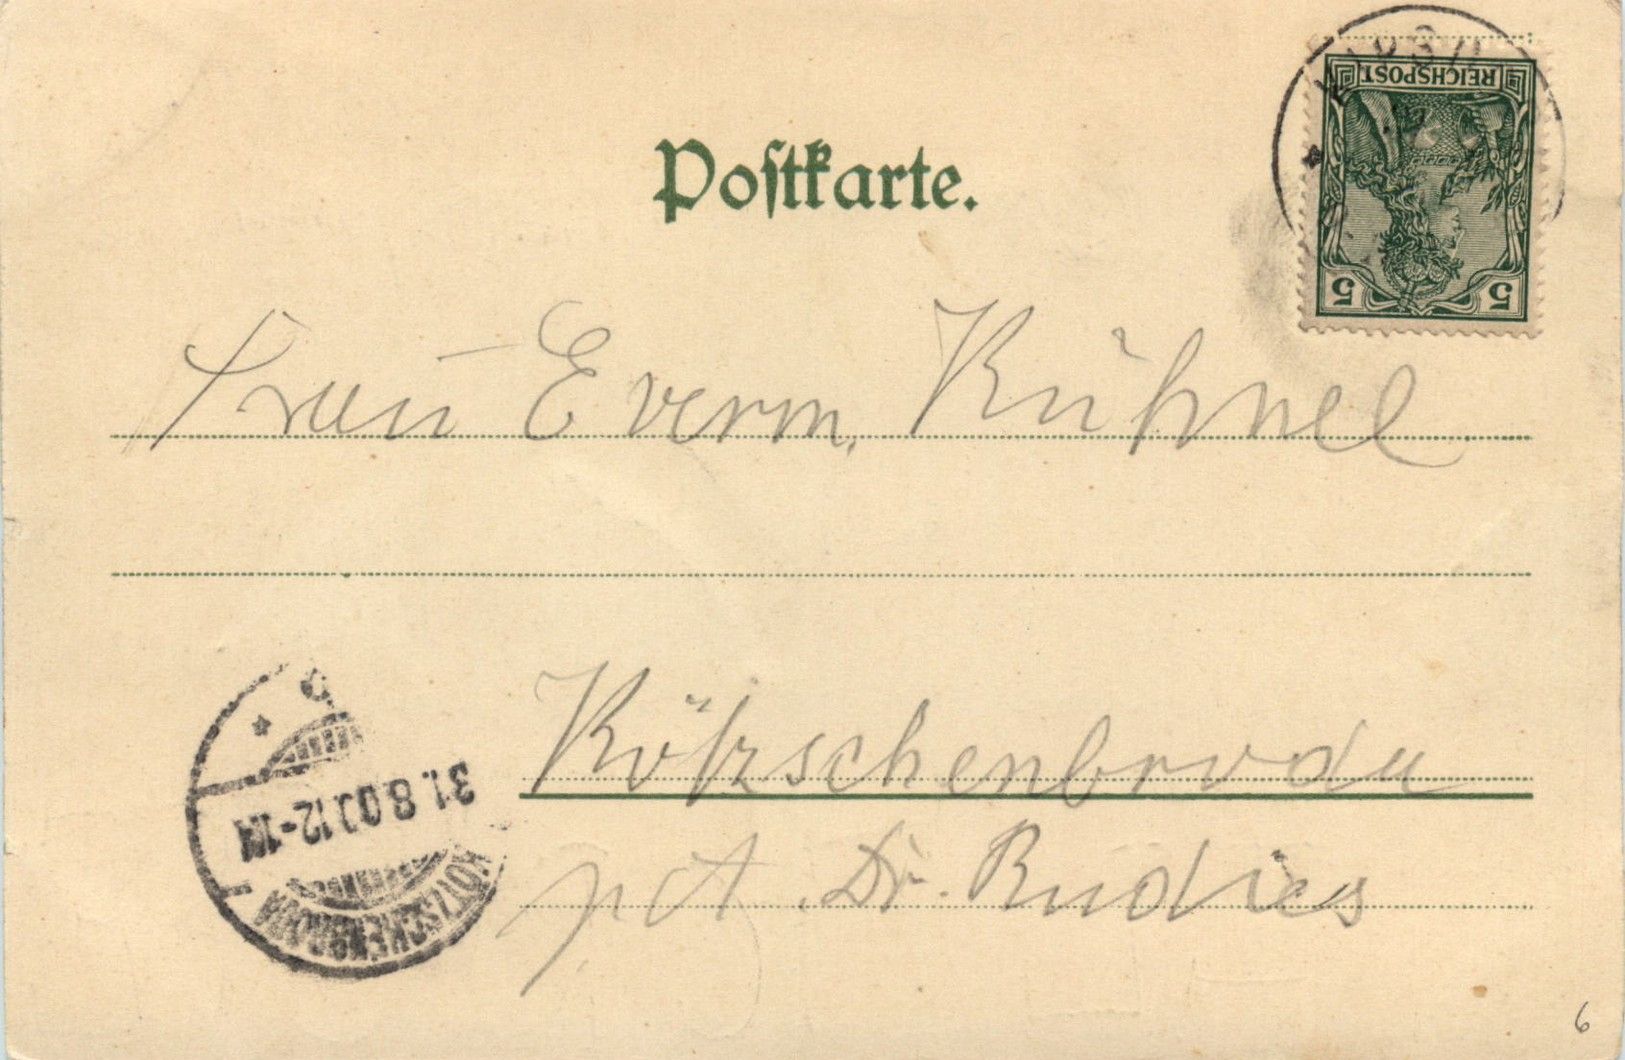 REICHSPOST
5 5
Postkarte.
Frau Everm. Kühnel
Kötzschenbroda
pct. Dr. Rudies
31.8.00.12-1N
KÖTZSCHENBRODA
6